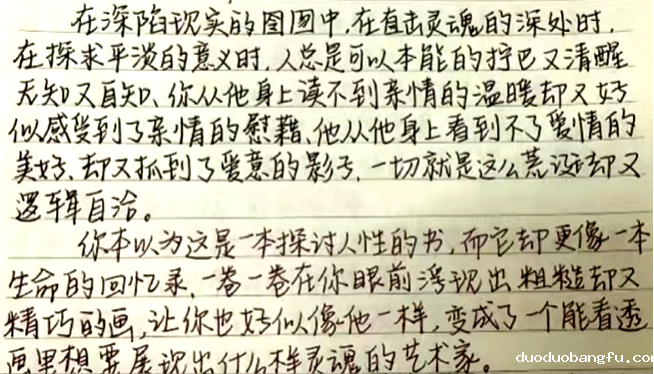 在深陷现实的囹圄中,在直击灵魂的深处时,
在探求平淡的意义时,人总是可以本能的拧巴又清醒
无知又自知、你从他身上读不到亲情的温暖却又好
似感受到了亲情的慰藉、他从他身上看到不了爱情的
美好、却又抓到了爱意的影子,一切就是这么荒诞却又
逻辑自洽。
你本以为这是一本探讨人性的书,而它却更像一本
生命的回忆录,一卷一卷在你眼前浮现出粗糙却又
精巧的画,让你也好似像他一样,变成了一个能看透
画里想要展现出什么样灵魂的艺术家。
www.duoduobangfu.com